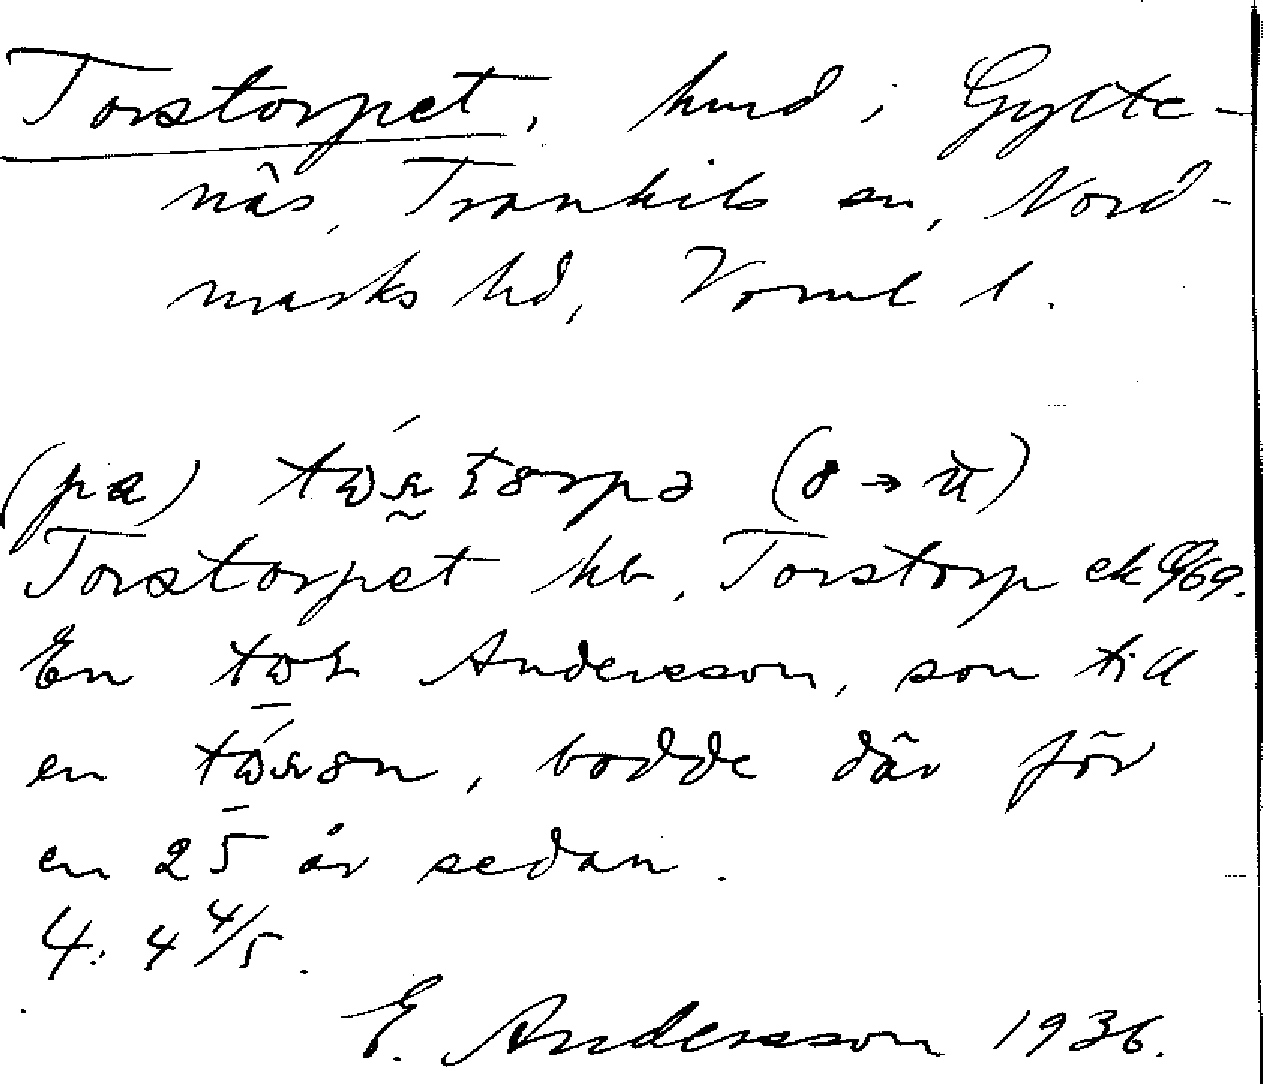 Torstorpet, hmd i Gylte-
näs, Trankils sn, Nord-
marks hd, Vrml l.
(pa)
Torstorpet kb, Torstorp ek 69.
En Andersson, son till
en bodde där för
en 25 år sedan.
4: 4 4/5.
E. Andersson 1936.